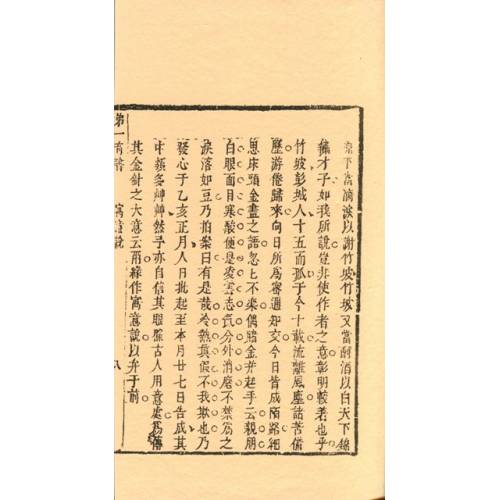 泉下當滴淚以謝竹坡竹坡又當酹酒以白天下錦
繡才子如我所說豈非使作者之意彰明較著也乎
竹坡彭城人十五而孤于今十載流離風塵諸苦備
歷游倦歸來向日所為密邇知交今日皆成陌路細
思床頭金盡之語忽忽不樂偶睹金瓶起手云親朋
白眼面目寒酸便是凌雲志氣分外消磨不禁為之
淚落如豆乃拍案曰有是哉冷熱真假不我欺也乃
發心于乙亥正月人日批起至本月廿七日告成其
中頗多艸艸然予亦自信其眼照古人用意處為傳
其金針之大意云爾緣作寓意說以弁于前
第一奇書 寓意說 八